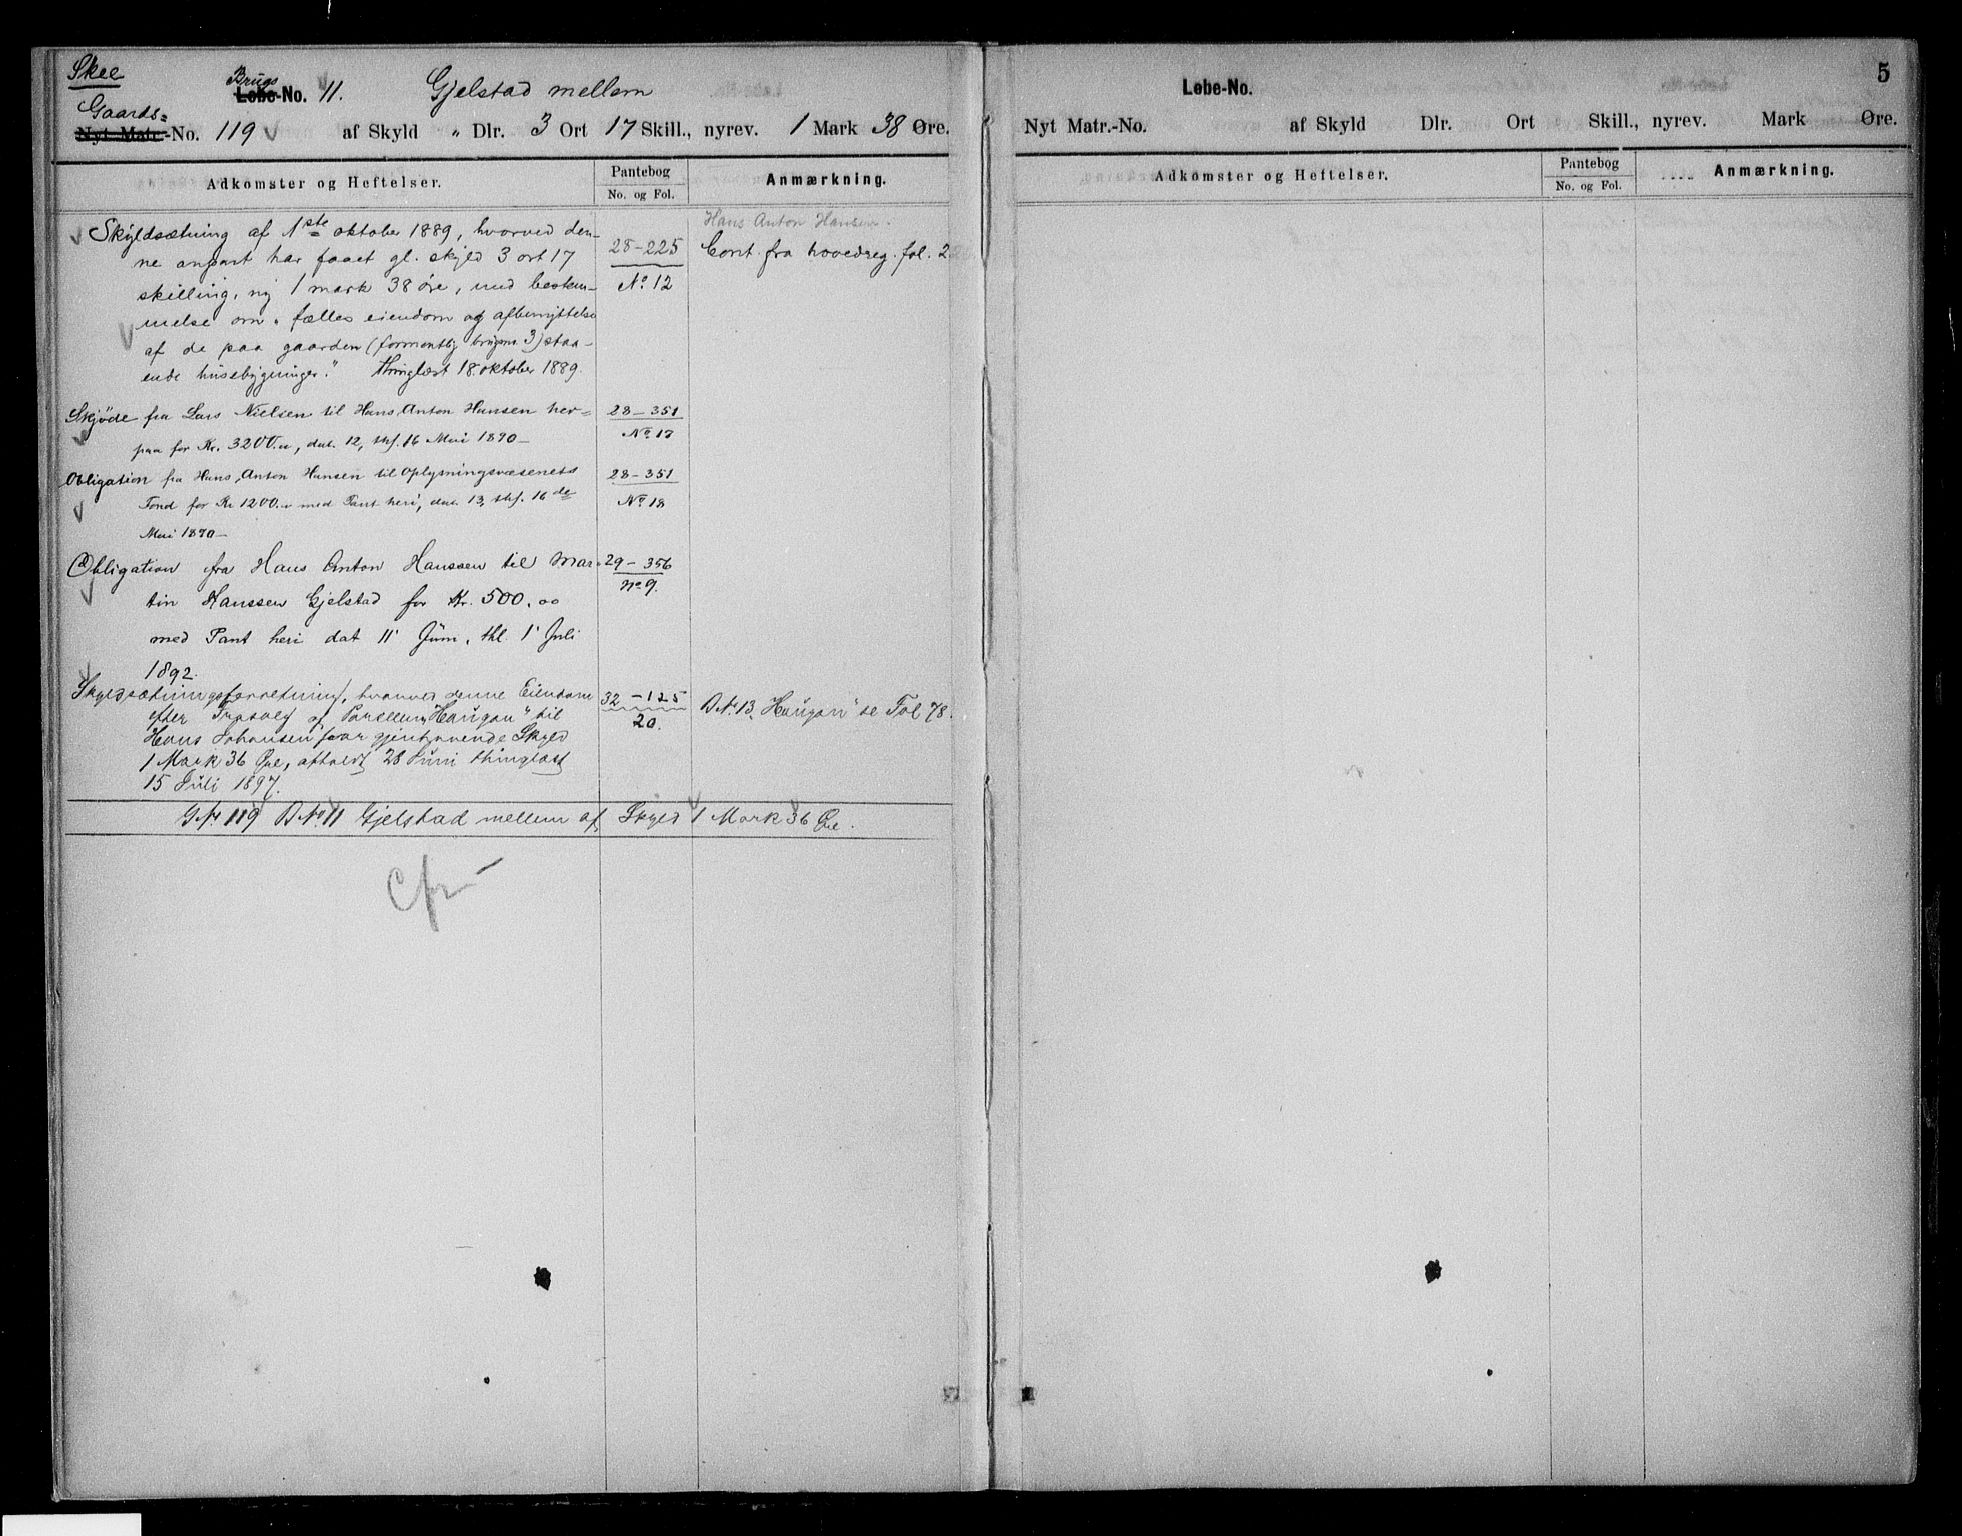 Skee
Brugs
Løbe-No. 11. Gjelstad mellem
Gaards-
Nyt Matr.-No. 119 af Skyld " Dlr. 3 Ort 17 Skill., nyrev. 1 Mark 38 Øre.
Adkomster og Heftelser. Pantebog No. og Fol. Anmærkning.
Hans Anton Hansen.
Skyldsætning af 1ste oktober 1889, hvorved den- 28-225 Cont. fra hovedreg. fol.
ne anpart har faaet gl. skyld 3 ort 17
skilling, ny 1 mark 38 øre, med bestem- No. 12
melse om "fælles eiendom og afbenyttelse
af de paa gaarden (formentlig brugsno. 3) staa-
ende husebygninger." Thinglæst 18. oktober 1889.
Skjøde fra Lars Nielsen til Hans Anton Hansen her- 28-351
paa for Kr. 3200.00, dat. 12, thl. 16 Mai 1890- No. 17
Obligation fra Hans Anton Hansen til Oplysningsvæsenets 28-351
Fond for Kr 1200.00 med Pant heri, dat. 13, thl. 16de No. 18
Mai 1890-
Obligation fra Hans Anton Hanssen til Mar- 29-356
tin Hanssen Gjelstad for Kr. 500.00 No. 9.
med Pant heri dat 11' Juni, thl. 1' Juli
1892.
Skyldsætningsforretning, hvorved denne Eiendom 32-125
efter Frasalg af Parsellen "Haugan" til 20. B.No. 13. "Haugan" se Fol 78.
Hans Johansen faar gjenhavende Skyld
1 Mark 36 Øre, afholdt 28 Juni thinglæst
15 Juli 1897.
GNo. 119 BNo. 11 Gjelstad mellem af Skyld 1 Mark 36 Øre.
5
Løbe-No.
Nyt Matr.-No. af Skyld Dlr. Ort Skill., nyrev. Mark Øre.
Adkomster og Heftelser. Pantebog No. og Fol. Anmærkning.